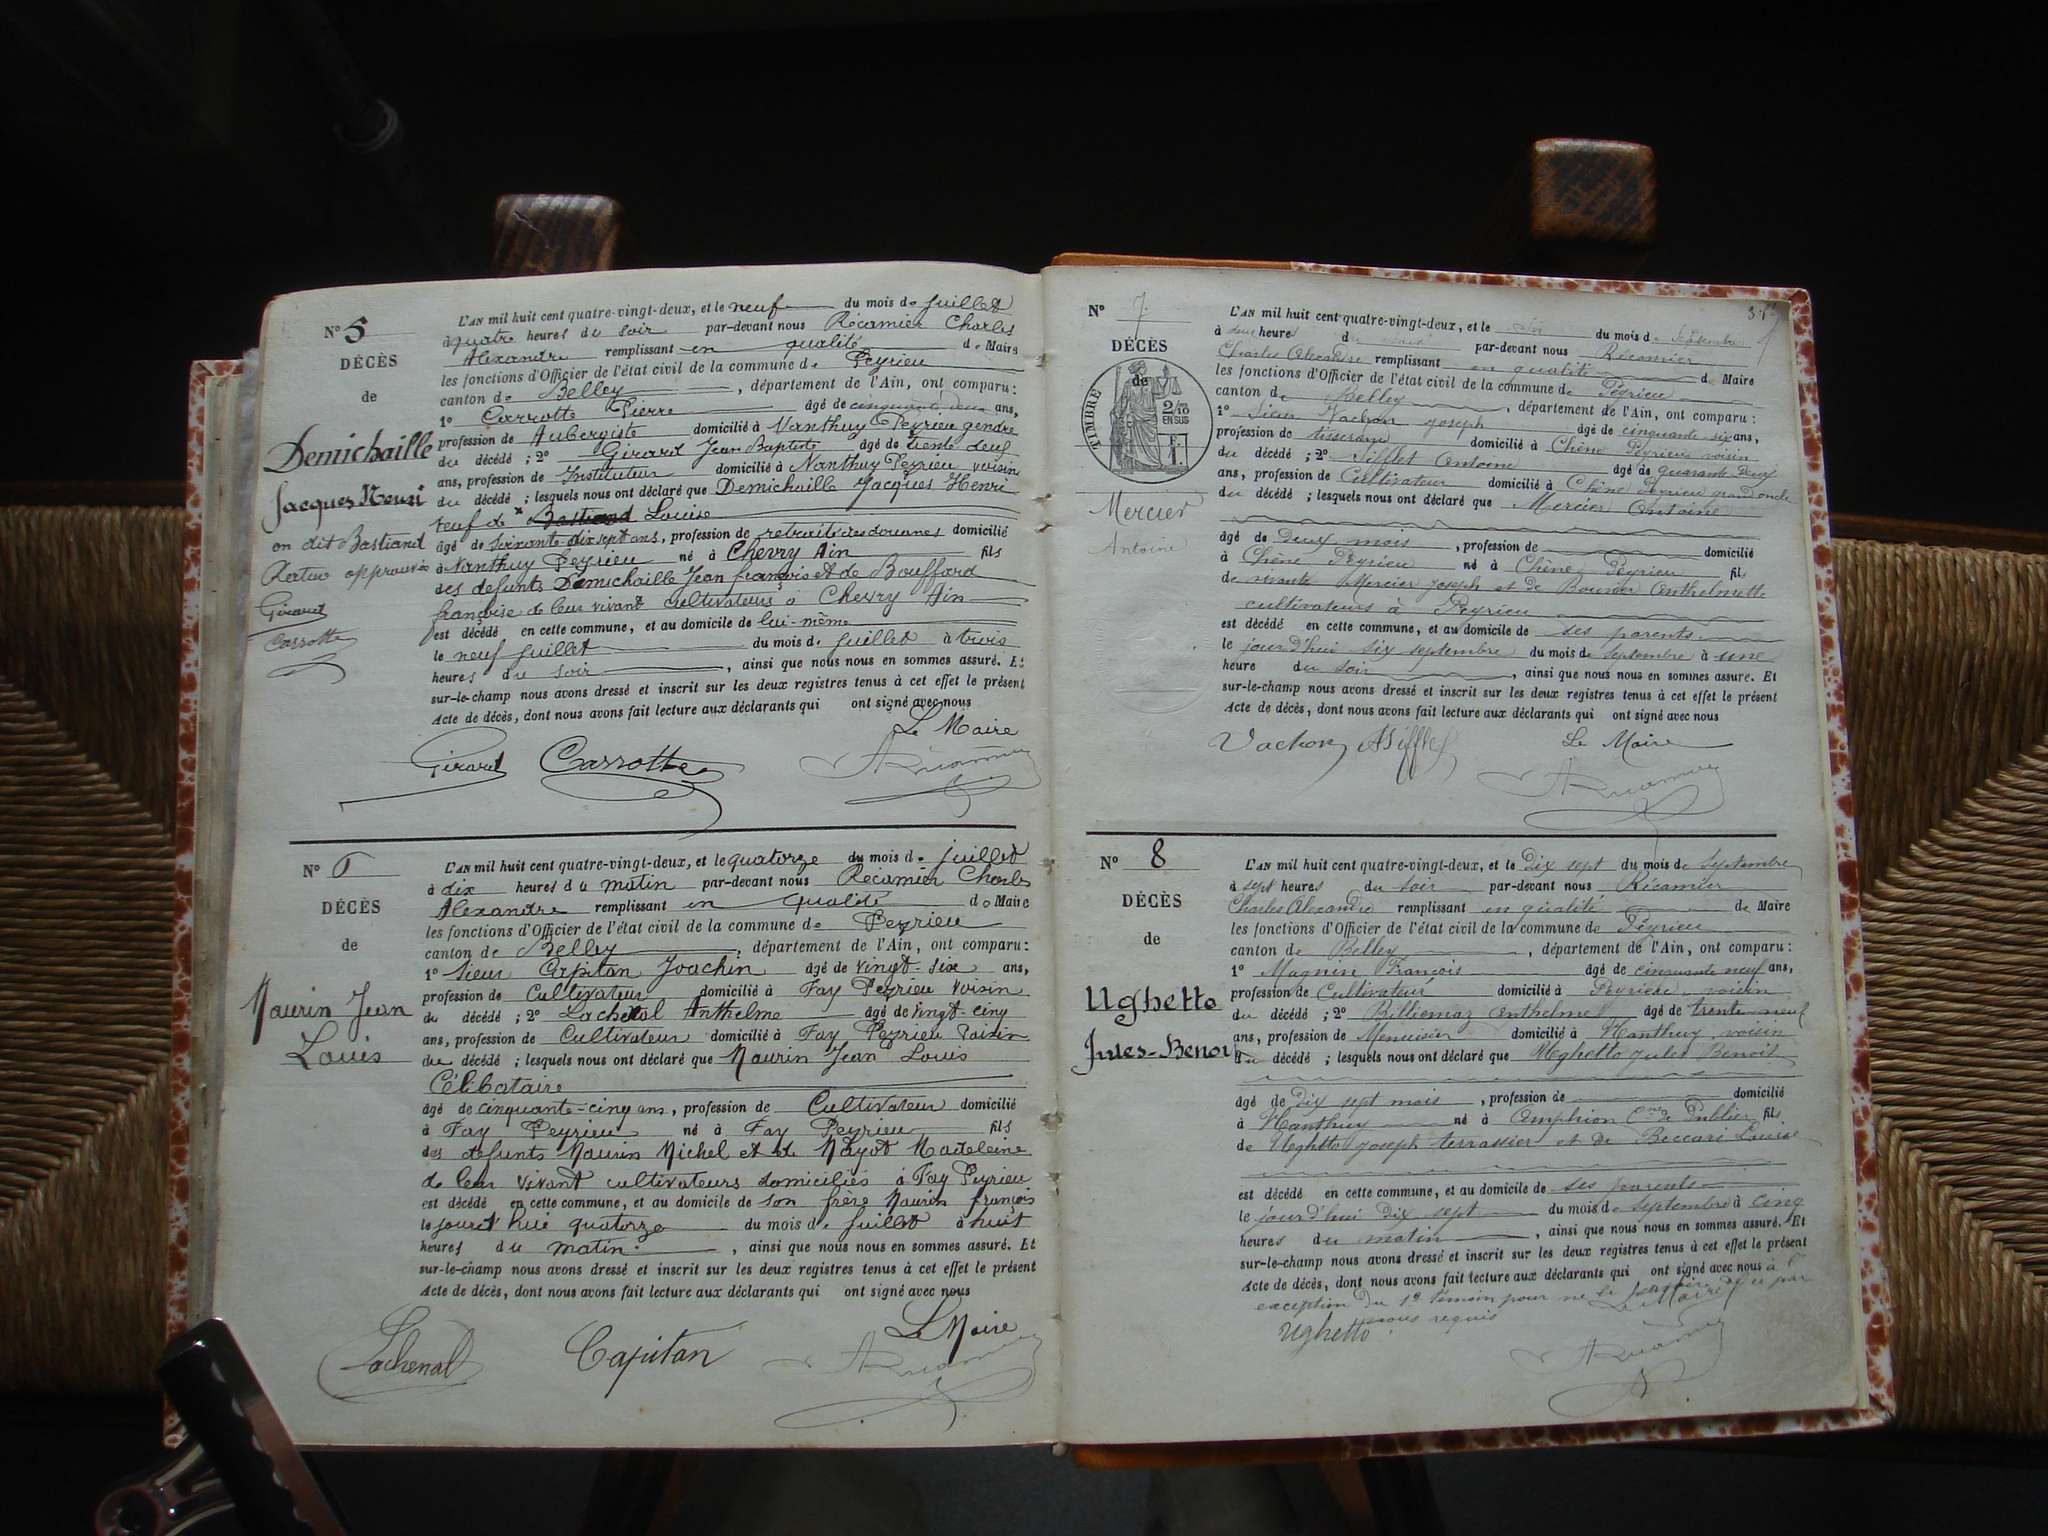 N° 5
DÉCÈS
de
Demichaille
Jacques Henri
on dit Bastiand
Rature approuvée
Girard
Carrotte
L'AN mil huit cent quatre-vingt-deux, et le neuf du mois de juillet
à quatre heures du soir par-devant nous Récamier Charles
Alexandre remplissant en qualité de Maire
les fonctions d'Officier de l'état civil de la commune de Peyrieu
canton de Belley, département de l'Ain, ont comparu:
1° Carrotte Pierre âgé de cinquante deux ans,
profession de Aubergiste domicilié à Nanthuy Peyrieu gendre
du décédé; 2° Girard Jean Baptiste âgé de trente deux
ans, profession de Instituteur domicilié à Nanthuy Peyrieu voisin
du décédé; lesquels nous ont déclaré que Demichaille Jacques Henri
veuf de Bastiand Louise
âgé de soixante-dix sept ans, profession de retraité des douanes domicilié
à Nanthuy Peyrieu né à Chevry Ain fils
des defunts Demichaille Jean françois et de Bouffard
françoise de leur vivant cultivateurs à Chevry Ain
est décédé en cette commune, et au domicile de lui-même
le neuf juillet du mois de juillet à trois
heures du soir, ainsi que nous nous en sommes assuré. Et
sur-le-champ nous avons dressé et inscrit sur les deux registres tenus à cet effet le présent
Acte de décès, dont nous avons fait lecture aux déclarants qui ont signé avec nous
Le Maire
Girard Carrotte
N° 6
DÉCÈS
de
Maurin Jean
Louis
L'AN mil huit cent quatre-vingt-deux, et le quatorze du mois de juillet
à dix heures du matin par-devant nous Récamier Charles
Alexandre remplissant en qualité de Maire
les fonctions d'Officier de l'état civil de la commune de Peyrieu
canton de Belley, département de l'Ain, ont comparu:
1° Sieur Capitan Joachin âgé de vingt-six ans,
profession de Cultivateur domicilié à Fay Peyrieu voisin
du décédé; 2° Lachenal Anthelme âgé de vingt-cinq
ans, profession de Cultivateur domicilié à Fay Peyrieu voisin
du décédé; lesquels nous ont déclaré que Maurin Jean Louis
Célibataire
âgé de cinquante-cinq ans, profession de Cultivateur domicilié
à Fay Peyrieu né à Fay Peyrieu fils
des defunts Maurin Michel et de Mayot Madeleine
de leur vivant cultivateurs domiciliés à Fay Peyrieu
est décédé en cette commune, et au domicile de son frère Maurin françois
le jourd'hui quatorze du mois de juillet à huit
heures du matin, ainsi que nous nous en sommes assuré. Et
sur-le-champ nous avons dressé et inscrit sur les deux registres tenus à cet effet le présent
Acte de décès, dont nous avons fait lecture aux déclarants qui ont signé avec nous
Le Maire
Lachenal Capitan
N° 7
DÉCÈS
de
TIMBRE
2/10
EN SUS
Mercier
Antoine
L'AN mil huit cent quatre-vingt-deux, et le six du mois de Septembre
à deux heures par-devant nous Récamier
Charles Alexandre remplissant en qualité de Maire
les fonctions d'Officier de l'état civil de la commune de Peyrieu
canton de Belley, département de l'Ain, ont comparu:
1° Sieur Vachon Joseph âgé de cinquante six ans,
profession de tisserand domicilié à Chêne Peyrieu voisin
du décédé; 2° Sifflet Antoine âgé de quarante deux
ans, profession de Cultivateur domicilié à Chêne Peyrieu grand oncle
du décédé; lesquels nous ont déclaré que Mercier Antoine
âgé de Deux mois, profession de domicilié
à Chêne Peyrieu né à Chêne Peyrieu fils
de vivants Mercier Joseph et de Bouvier Anthelmette
cultivateurs à Peyrieu
est décédé en cette commune, et au domicile de ses parents
le jourd'hui six septembre du mois de septembre à une
heure du soir, ainsi que nous nous en sommes assuré. Et
sur-le-champ nous avons dressé et inscrit sur les deux registres tenus à cet effet le présent
Acte de décès, dont nous avons fait lecture aux déclarants qui ont signé avec nous
Vachon ASifflet Le Maire
N° 8
DÉCÈS
de
Ughetto
Jules-Benoit
L'AN mil huit cent quatre-vingt-deux, et le Dix sept du mois de Septembre
à sept heures du soir par-devant nous Récamier
Charles Alexandre remplissant en qualité de Maire
les fonctions d'Officier de l'état civil de la commune de Peyrieu
canton de Belley, département de l'Ain, ont comparu:
1° Magnin François âgé de cinquante neuf ans,
profession de Cultivateur domicilié à Peyrieu voisin
du décédé; 2° Billiemaz Anthelme âgé de trente neuf
ans, profession de Menuisier domicilié à Nanthuy voisin
du décédé; lesquels nous ont déclaré que Ughetto Jules Benoit
âgé de Dix sept mois, profession de domicilié
à Nanthuy né à Amphion Cne de Publier fils
de Ughetto Joseph terrassier et de Beccari Louise
est décédé en cette commune, et au domicile de ses parents
le jourd'hui Dix sept du mois de septembre à cinq
heures du matin, ainsi que nous nous en sommes assuré. Et
sur-le-champ nous avons dressé et inscrit sur les deux registres tenus à cet effet le présent
Acte de décès, dont nous avons fait lecture aux déclarants qui ont signé avec nous à l'
exception du 1er témoin pour ne le savoir faire de ce par
nous requis
Ughetto Le Maire